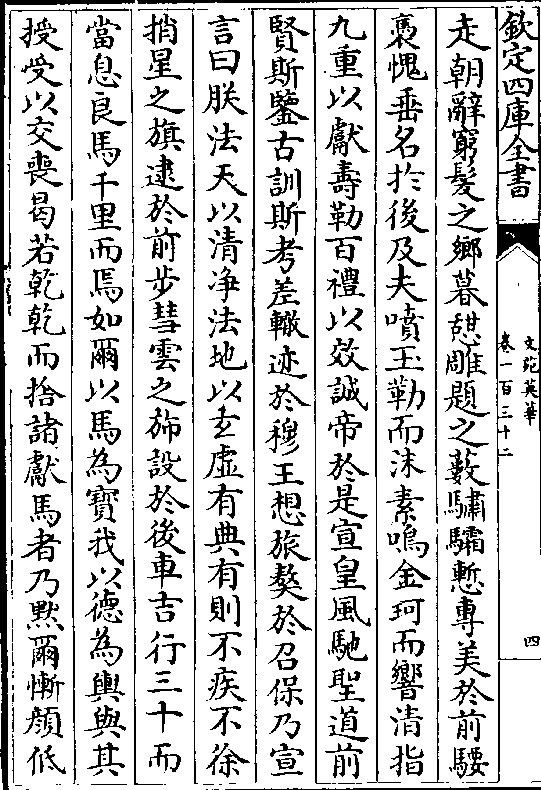 欽定四庫全書
文苑英華
卷一百三十二
四
走朝辭窮髮之鄉暮憇雕題之藪驌驦慙專美於前騕
褭愧垂名扵後及夫噴玉勒而沫素鳴金珂而響清指
九重以獻壽勒百禮以效誠帝於是宣皇風馳聖道前
賢斯鑒古訓斯考差轍迹於穆王想旅獒於召保乃宣
言曰朕法天以清淨法地以玄虛有典有則不疾不徐
捎星之旗逮於前步彗雲之斾設於後車吉行三十而
當息良馬千里而焉如爾以馬為寶我以德為輿與其
授受以交喪曷若乾乾而捨諸獻馬者乃默爾慚顔低